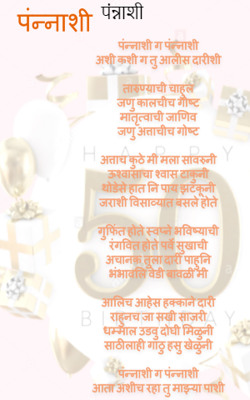 पंन्नाशी
पंन्नाशी
पंन्नाशी ग पंन्नाशी
अशी कशी ग तु आलीस दारीशी
तारुण्याची चाहूल
जणु कालचीच गोष्ट
मातृत्वाची जाणिव
जणु अत्ताचीच गोष्ट
अत्ताच कुठे मी मला सावरुनी
उश्वासाचा श्वास टाकुनी
थोडेसे हात नि पाय झटकूनी
जराशी विसाव्यात बसले होते
गुफित होते स्वप्ने भविष्याची
रंगवित होते पर्वे सुखाची
अचानक तुला दारी पाहुनि
भंभावले वेडी बावळी मी
आलिच आहेस हक्काने दारी
राहूनच जा सखी साजरी
धम्माल उडवु दोघी मिळुनी
साठीलाही गाठु हसु खेळुनी
पंन्नाशी ग पंन्नाशी
आता अशीच रहा तु माझ्या पाशी
HAPPY
50
BIRTHDAY